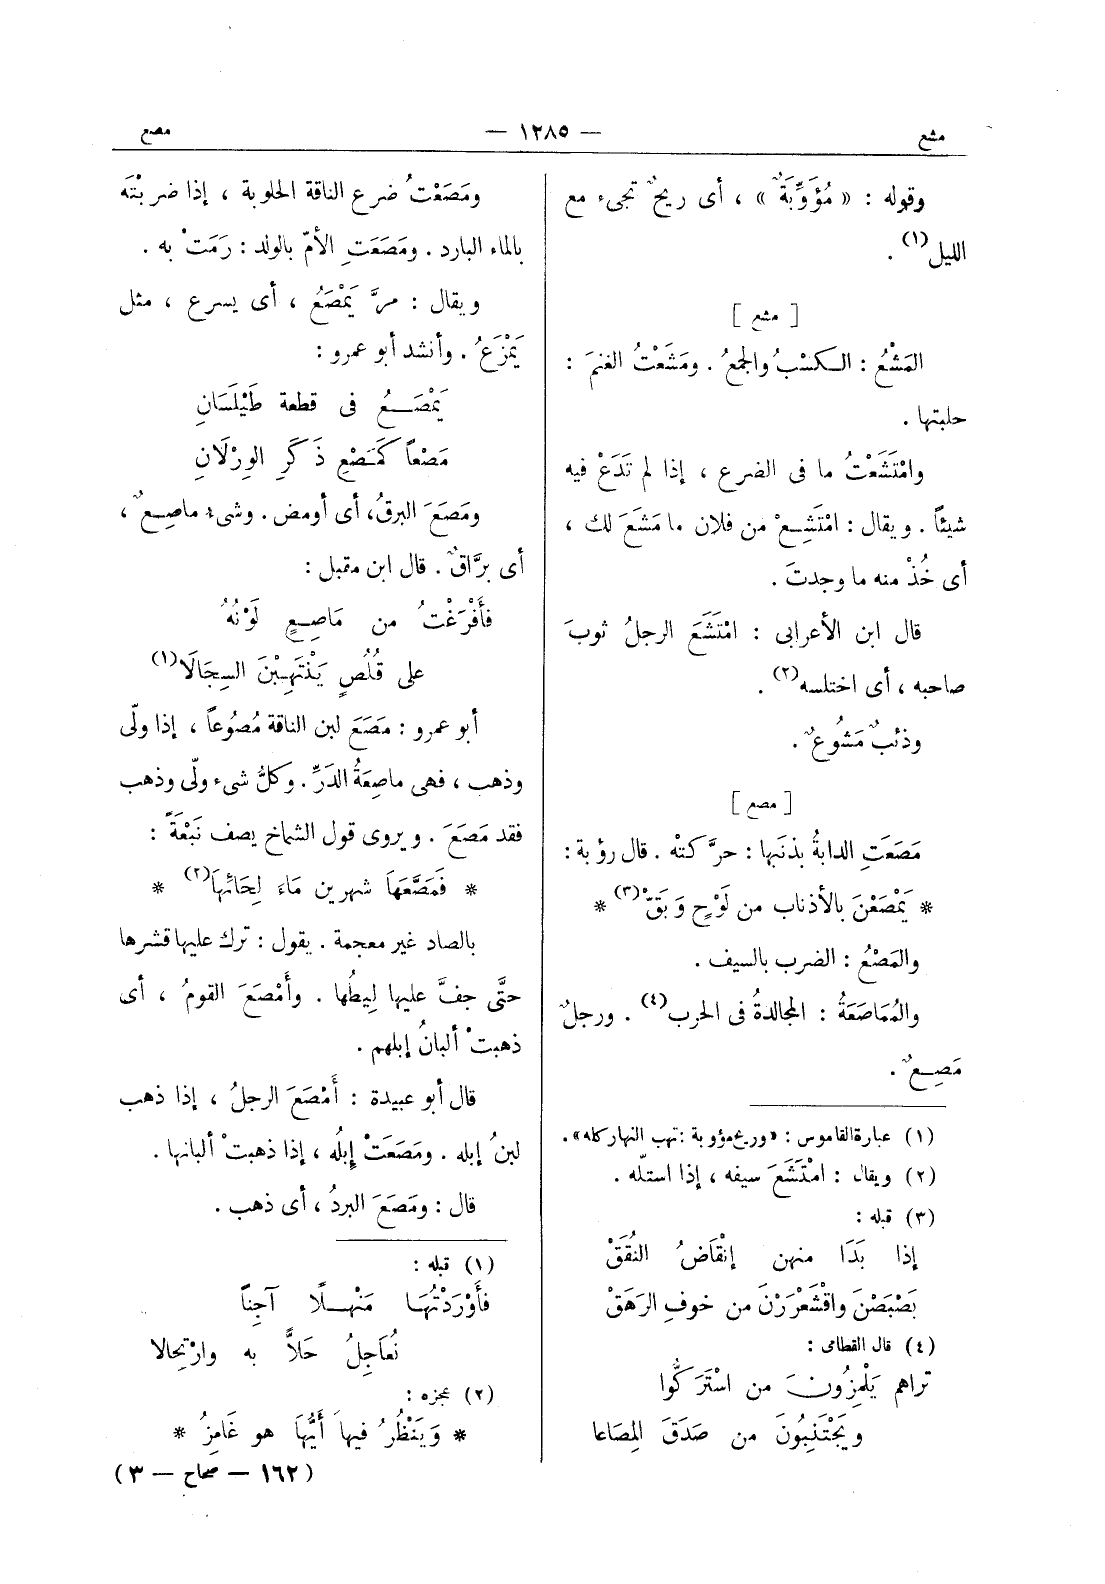 مشع
— ١٢٨٥ —
مصع
وقوله : « مُؤَوِّبَةٌ » ، أى ريحٌ تجىء مع
الليل(١) .
[ مشع ]
المَشْعُ : الكسْبُ والجمعُ . ومَشَعْتُ الغنمَ :
حلبتها .
وامْتَشَعْتُ ما فى الضرع ، إذا لم تَدَعْ فيه
شيئاً . ويقال : امْتَشِعْ من فلان ما مَشَعَ لك ،
أى خُذْ منه ما وجدتَ .
قال ابن الأعرابى : امْتَشَعَ الرجلُ ثوبَ
صاحبه ، أى اختلسه(٢) .
وذئبٌ مَشُوعٌ .
[ مصع ]
مَصَعَتِ الدابةُ بذنَبها : حرَّكتْه . قال رؤبة :
* يَمْصَعْنَ بالأذناب من لَوْحٍ وَبَقّْ(٣) *
والمَصْعُ : الضرب بالسيف .
والمُمَاصَعَةُ : المجالدةُ فى الحرب(٤) . ورجلٌ
مَصِعٌ .
(١) عبارة القاموس : «وريح مؤوبة : تهب النهار كله» .
(٢) ويقال : امْتَشَعَ سيفه ، إذا استلّه .
(٣) قبله :
إذا بَدَا منهن إنْقَاضُ النُقَقْ
بَصْبَصْنَ واقْشَعْرَرْنَ من خوفِ الرَهَقْ
(٤) قال القطامى :
تراهم يَلْمِزُونَ من اسْتَرَكُّوا
ويَجْتَنِبُونَ من صَدَقَ المِصَاعا
ومَصَعْتُ ضرع الناقة الحلوبة ، إذا ضربْتَه
بالماء البارد . ومَصَعَتِ الأمّ بالولد : رَمَتْ به .
ويقال : مرَّ يَمْصَعُ ، أى يسرع ، مثل
يَمْزَعُ . وأنشد أبو عمرو :
يَمْصَعُ فى قطعة طَيْلَسَانِ
مَصْعاً كَمَصْعِ ذَكَرِ الوِرْلَانِ
ومَصَعَ البرقُ، أى أومض . وشىء ماصِعٌ ،
أى برَّاقٌ . قال ابن مقبل :
فأَفْرَغْتُ من مَاصِعٍ لَوْنُهُ
على قُلُصٍ يَنْتَهِبْنَ السِجَالَا(١)
أبو عمرو : مَصَعَ لبن الناقة مُصُوعاً ، إذا ولّى
وذهب ، فهى ماصِعَةُ الدَرِّ . وكلُّ شىء ولّى وذهب
فقد مَصَعَ . ويروى قول الشماخ يصف نَبْعَةً :
* فَمَصَّعَهَا شهرين مَاءَ لِحَائِهَا(٢) *
بالصاد غير معجمة . يقول : ترك عليها قشرها
حتَّى جفَّ عليها لِيطُها . وأَمْصَعَ القومُ ، أى
ذهبتْ ألبانُ إبلهم .
قال أبو عبيدة : أَمْصَعَ الرجلُ ، إذا ذهب
لبنُ إبله . ومَصَعَتْ إبلُه ، إذا ذهبتْ ألبانها .
قال : ومَصَعَ البردُ ، أى ذهب .
(١) قبله :
فأَوْرَدْتُهَا مَنْهلًا آجِناً
نُعَاجِلُ حَلًّا به وارْتحالا
(٢) عجزه :
* وَيَنْظُرُ فيها أَيُّهَا هو غَامِزُ *
(١٦٢ — صحاح — ٣)